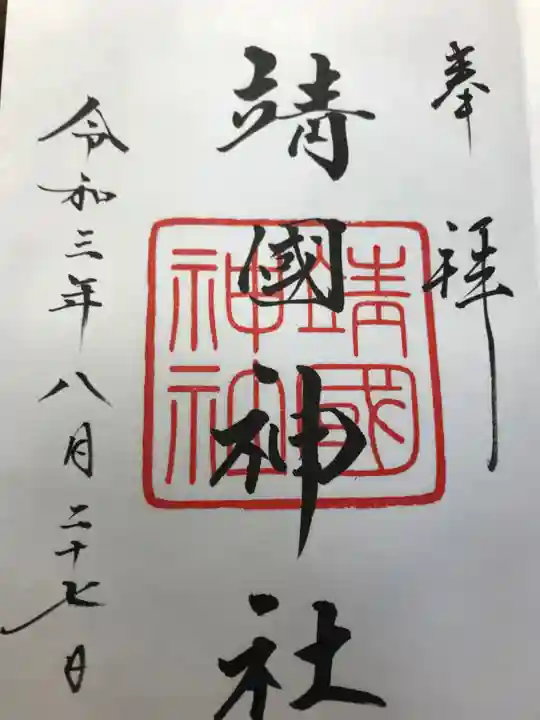 奉拝
靖國神社
靖國神社
令和三年八月二十七日